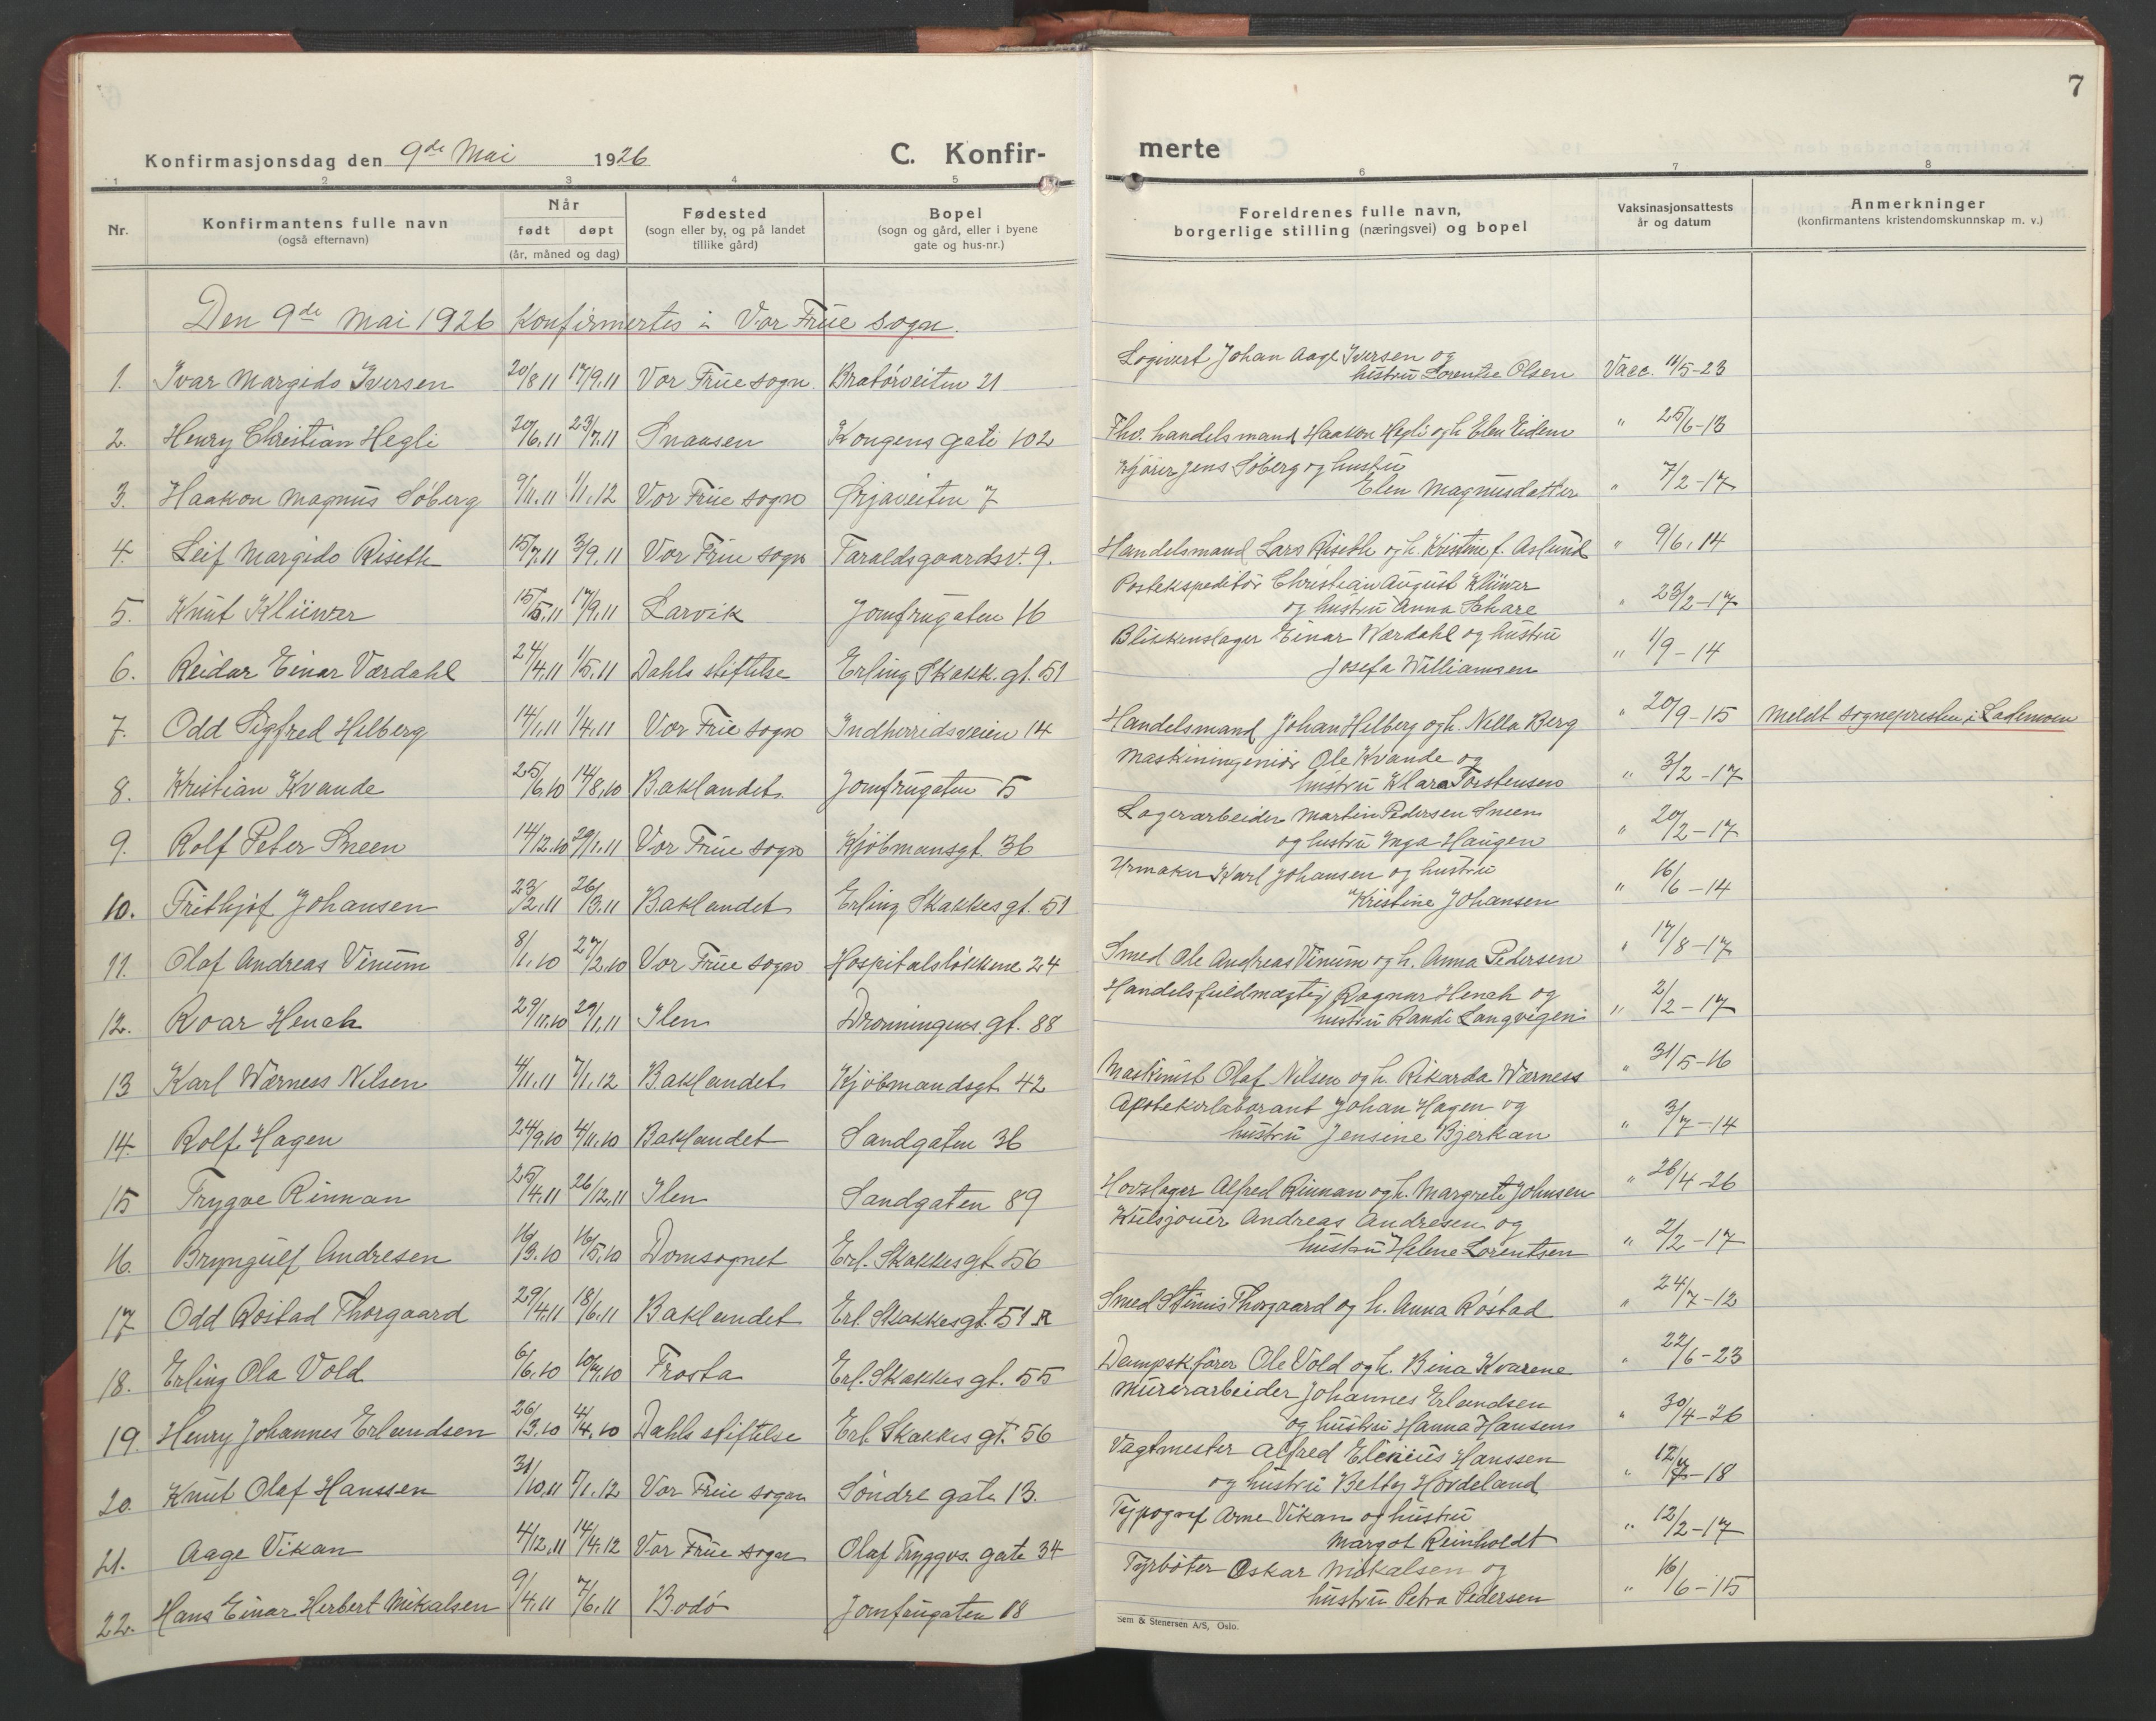 7
Konfirmasjonsdag den 9de Mai 1926
C. Konfir-
merte
1 2 3 4 5 6 7 8
Nr.
Konfirmantens fulle navn
(også efternavn)
Når
født døpt
(år, måned og dag)
Fødested
(sogn eller by, og på landet
tillike gård)
Bopel
(sogn og gård, eller i byene
gate og hus-nr.)
Foreldrenes fulle navn,
borgerlige stilling (næringsvei) og bopel
Vaksinasjonsattests
år og datum
Anmerkninger
(konfirmantens kristendomskunnskap m. v.)
Den 9de Mai 1926 Konfirmertes i Vor Frue sogn.
1. Ivar Margido Iversen 20/8 11 17/9.11 Vor Frue sogn. Bratörveiten 21 Logivert Johan Aage Iversen og
hustru Lorentse Olsen Vacc. 11/5-23
2. Henry Christian Hegli 20/6.11 23/7.11 Snaasen Kongens gate 102 Fhv. handelsmand Haakon Hegli og h. Elen Eidem " 25/6-13
3. Haakon Magnus Söberg 9/11.11 1/1.12 Vor Frue sogn Örjaveiten 7 Kjörer Jens Söberg og hustru
Elen Magnusdatter " 7/2-17
4. Leif Margido Riseth 15/7.11 3/9.11 Vor Frue sogn Taraldsgaardsv. 9. Handelsmand Lars Riseth og h. Kristine f. Aslund " 9/6.14
5. Knut Klüwer 15/5.11 17/9.11 Larvik Jomfrugaten 16 Postekspeditör Christian August Klüwer
og hustru Anna Schare " 23/2-17
6. Reidar Einar Værdahl 24/4.11 1/5.11 Dahls stiftelse Erling Skakk. gt. 51 Blikkenslager Einar Værdahl og hustru
Josefa Williamsen " 1/9-14
7. Odd Sigfred Helberg 14/1.11 1/4.11 Vor Frue sogn Indherridsveien 14 Handelsmand Johan Helberg og h. Nella Berg " 20/9-15 Meldt sognepresten i Lademoen
8. Kristian Kvande 25/6.10 14/8.10 Baklandet Jomfrugaten 5 Maskiningeniör Ole Kvande og
hustru Klara Torstensen " 3/2-17
9. Rolf Peter Sneen 14/12.10 29/1.11 Vor Frue sogn Kjöbmansgt. 36 Lagerarbeider Martin Pedersen Sneen
og hustru Inga Haugen " 20/2-17
10. Frithjof Johansen 23/2.11 26/3.11 Baklandet Erling Skakkes gt. 51 Urmaker Karl Johansen og hustru
Kristine Johansen " 16/6-14
11. Olaf Andreas Vinum 8/1.10 27/2.10 Vor Frue sogn Hospitalslökkene 24 Smed Ole Andreas Vinum og h. Anna Pedersen " 17/8-17
12. Roar Hench 29/11.10 29/1.11 Ilen Dronningens gt. 88 Handelsfuldmægtig Ragnar Hench og
hustru Randi Langvigen " 2/2-17
13 Karl Wærness Nilsen 4/11.11 7/1.12 Baklandet Kjöbmandsgt. 42 Maskinist Olaf Nilsen og h. Rikarda Wærness " 31/5-16
14. Rolf Hagen 24/9.10 4/11.10 Baklandet Sandgaten 36 Apotekerlaborant Johan Hagen og
hustru Jensine Bjerkan " 3/7-14
15 Trygve Rinnan 25/4.11 26/12.11 Ilen Sandgaten 89 Hovslager Alfred Rinnan og h. Margrete Johnsen " 26/4-26
16. Bryngulf Andresen 16/3.10 16/5.10 Domsognet Erl. Skakkes gt. 56 Kulsjouer Andreas Andresen og
hustru Helene Lorentsen " 2/2-17
17 Odd Röstad Thorgaard 29/4.11 18/6.11 Baklandet Erl. Skakkes gt. 51 A Smed Stinus Thorgaard og h. Anna Röstad " 24/7-12
18. Erling Ola Vold 6/6.10 10/7.10 Frosta Erl. Skakkes gt. 55 Dampskförer Ole Vold og h. Bina Kvarene " 22/6-23
19 Henry Johannes Erlandsen 26/3.10 4/4.10 Dahls stiftelse Erl. Skakkes gt. 56 Murerarbeider Johannes Erlandsen
og hustru Hanna Hansen " 30/4-26
20. Knut Olaf Hanssen 31/10.11 7/1.12 Vor Frue sogn Söndre gate 13. Vagtmester Alfred Elenius Hanssen
og hustru Betty Hovdeland " 12/7-18
21. Aage Vikan 4/12.11 14/4.12 Vor Frue sogn Olaf Tryggvs. gate 34 Typograf Arne Vikan og hustru
Margot Reinholdt " 12/2-17
22. Hans Einar Herbert Mikalsen 9/4.11 7/6.11 Bodö Jomfrugaten 18 Fyrböter Oskar Mikalsen og
hustru Petra Pedersen " 16/6-15
Sem & Stenersen A/S, Oslo.